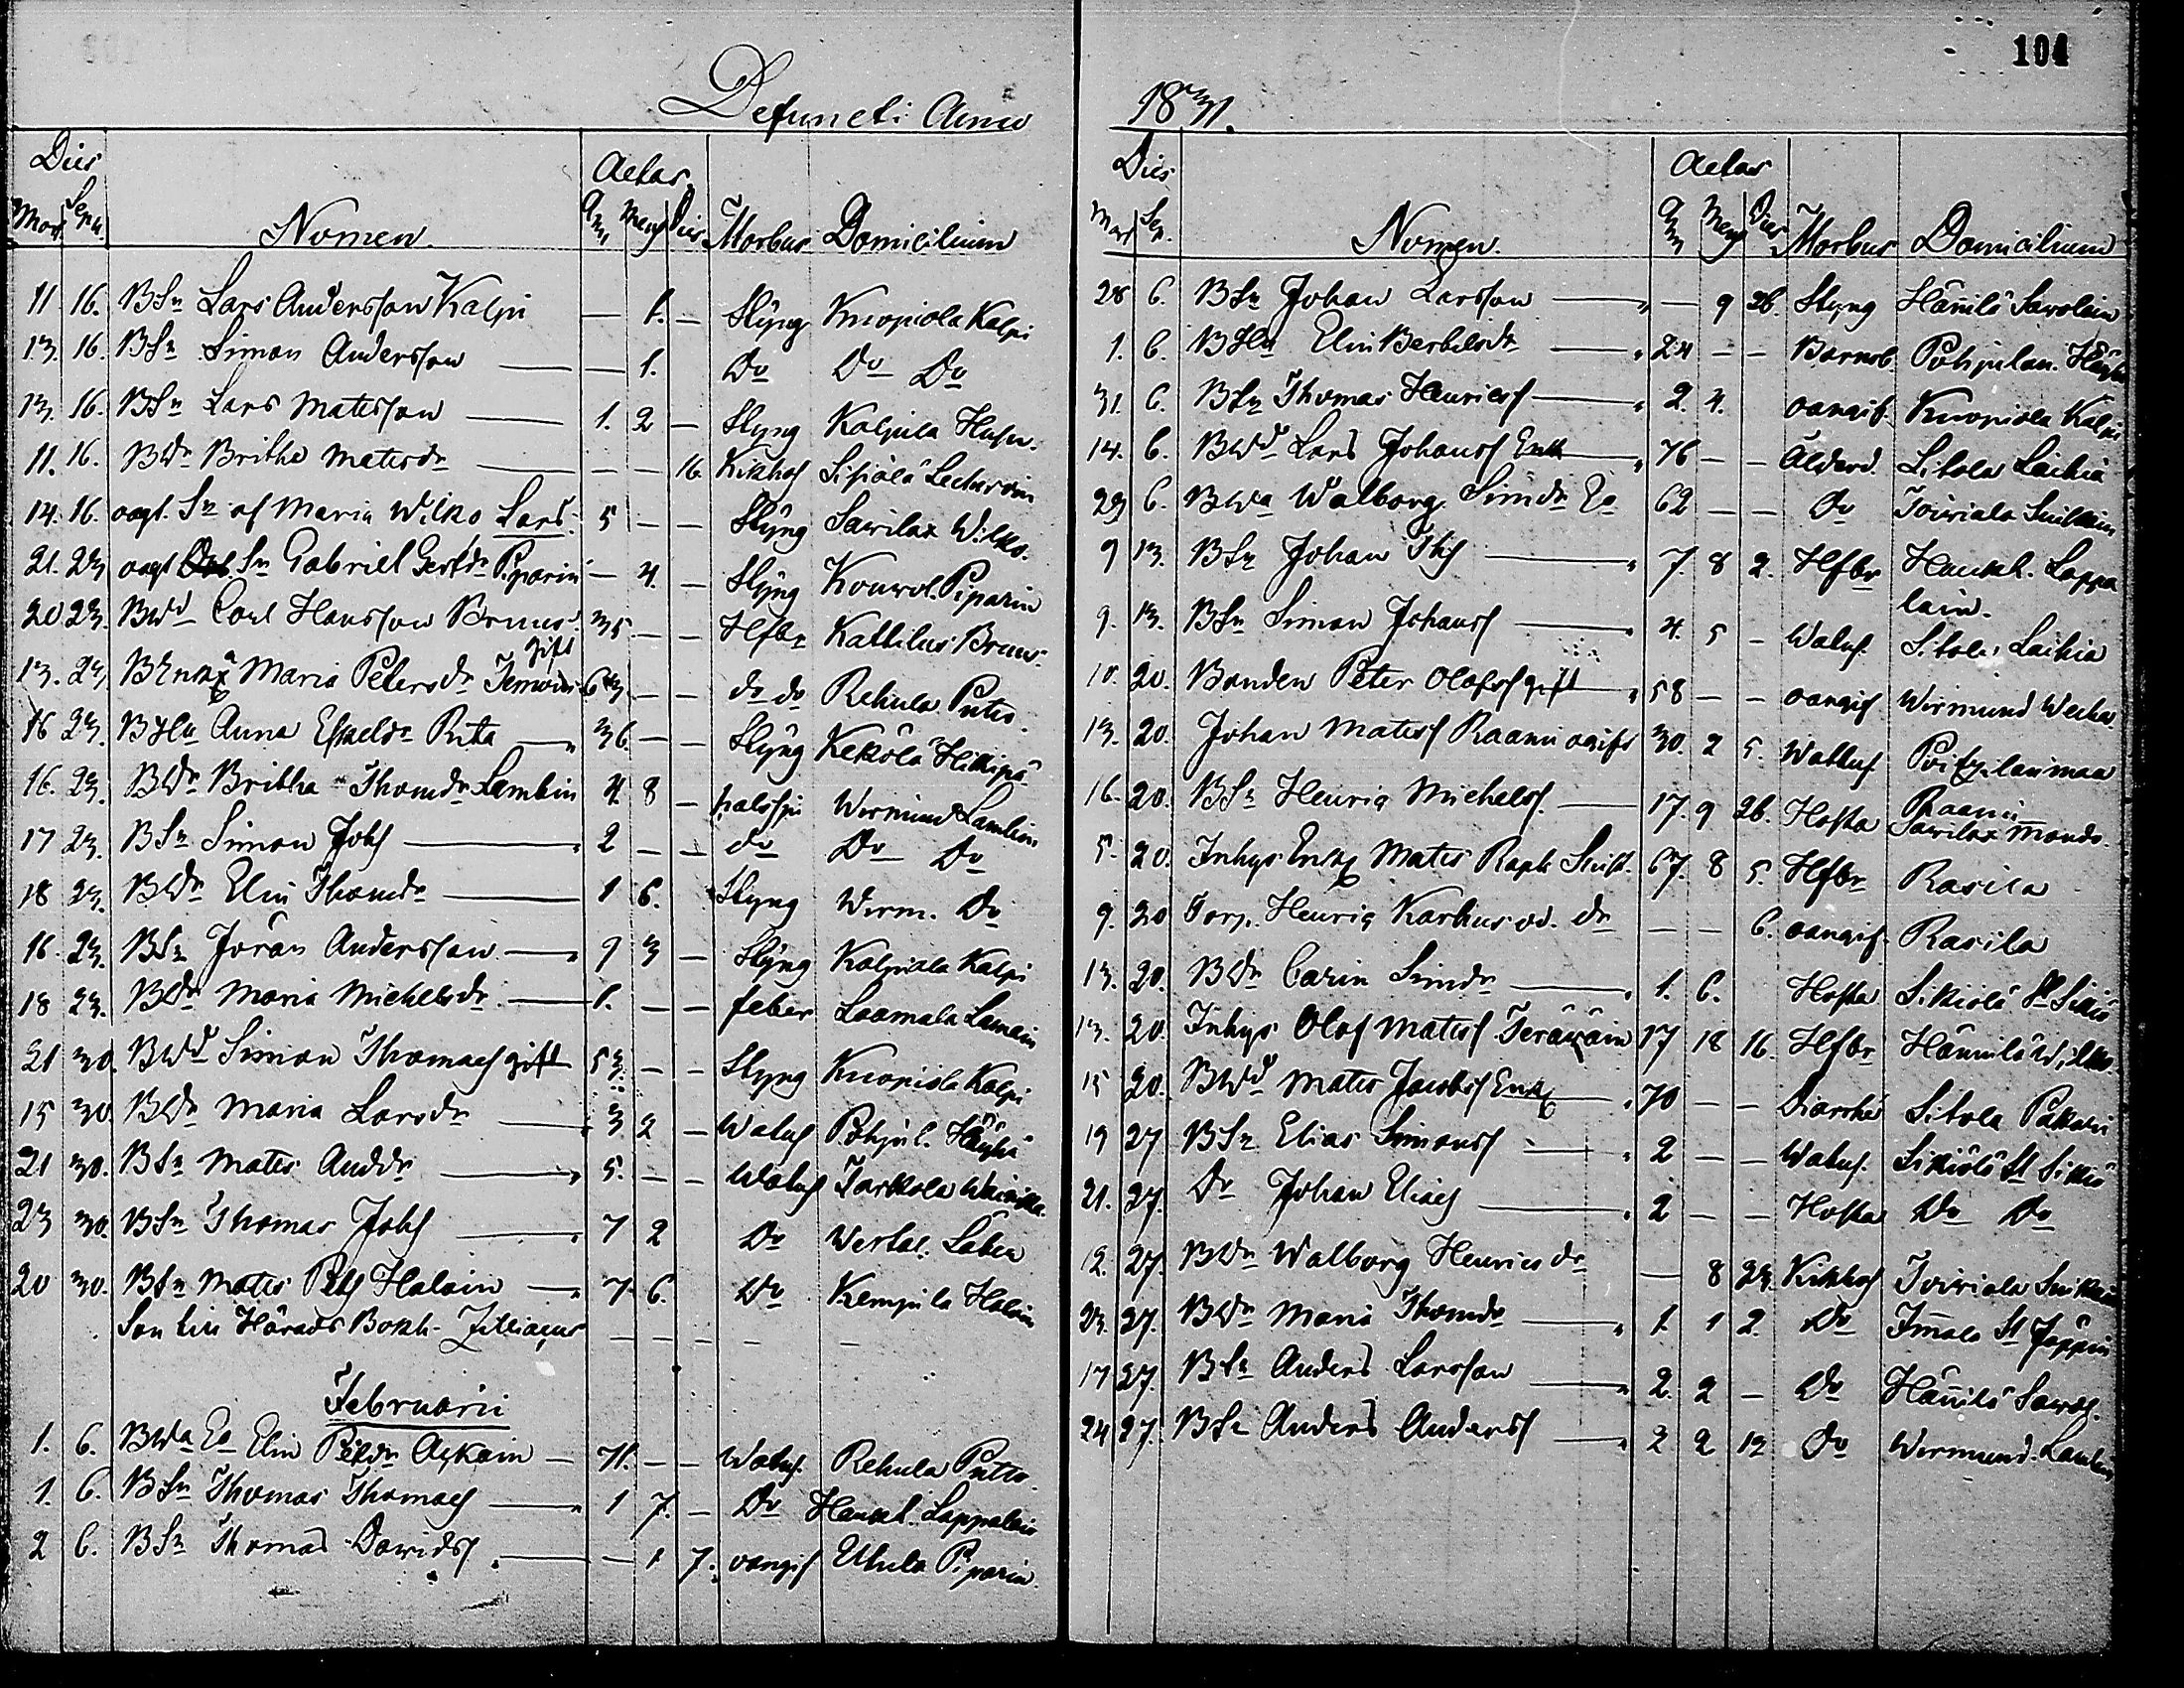 104
Defuncti Anno
Dies Aetas
Mort Sepu. Nomen. Ann Mens Dies Morbus Domicilium
11 16. BSn Lars Andersson Kalpi — 1. — Slyng Kuopiola Kalpi
13. 16. BSn Simon Andersson — 1. Do Do Do
13. 16. BSn Lars Matsson 1. 2 — Slyng Kalpila Hufv.
11. 16. BDr Britha Matsdr — — 16. Kikhos Sipiälä
14. 16. oägt. Sn af Maria Wilko Lars. 5 — — Slyng Sawilax Wilko.
21. 23 oägt Sn Gabriel Piparin — 4. — Slyng Piparin
20 23. BWd Carl Hansson Bruus gift 35 — — Hfbr Kattilus Bruus.
13. 23 BEnkx Maria Petersdr 63 — — do do Rehula Putto.
16 23. BHu Anna Eskelsdr Rita 36 — — Slyng Kekölä Hikipä
16. 23. BDr Britha Thomdr Lambin 4 8 — halssju Wirmund Lambin
17 23. BSn Simon Johs 2 — — do Do Do
18 23. BDr Elin Thomdr 1 6. Slyng Wirm. Do
16. 23. BSn Jöran Andersson 9 3 — Slyng Kalpiala Kalpi
18 23. BDr Maria Michelsdr 1. — — feber Laamala Lamain
21 30. BWd Simon Thomass gift 53. — — Slyng Kuopiola Kalpi
15 30 BDr Maria Larsdr 3 2 — Watus Pohjul. Häyhä
21 30. BSn Mats Anddr 5. — — Watus Tarkola
23 30. BSn Thomas Johs 7 2 Do
20 30. BSn Mats Pets Halain 7 6. Do Kempila Halain
Son till Härads Bokh. — — — — —
Februarii
1. 6. BWa Ea Elin Petdr 71. — — Watus. Rehula Putto.
1. 6. BSn Thomas Thomass 1 7. — Do Haukk. Lappalain
2 6. BSn Thomas Davidss — 1 7. oangif Uhula Piparin.
1831.
Dies Aetas
Mort Sep. Nomen. Ann Mens Dies Morbus Domicilium
28 6. BSn Johan Larsson — 9 26. Slyng Hämilä Sawolain
1. 6. BHu Elin Bertelsdr 24 — — Barnsb. Pohjulan. Häyhä
31. 6. BSn Thomas Henricss 2. 4. oangif. Kuopiola Kalpi
14. 6. BWd Lars Johanss Enk 76 — — Ålderd. Sitola Laihia
29 6. BWa Walborg Simdr Ea 62 — — Do Toiviala Suikkain
9 13. BSn Johan Ths 7. 8 2. Hfbr Haukk. Lappa
lain.
9. 13. BSn Simon Johanss 4. 5 — Watus. Sitola Laihia
10. 20. Bonden Peter Olofss gift 58 — — oangif Wirmund Wecha
13. 20. Johan Matss Raami ogift 30. 2 5. Wattus Poitzilanmaa
Raami
16. 20. BSn Henric Michelss. 17. 9 26. Hosta Sawilax
5. 20. Inhys Enkx Mats Raph 67. 8 5. Hfbr Rasila
9. 20 Torp. Henric Karhus od. dr — — 6. oangif. Rasila
13. 20. BDr Carin Simdr 1. 6. Hosta Sikiölä St Sikiö
13. 20. Inhys Olof Matss Teräväin 17 18 16. Hfbr Hämilä Wilko
15 20. BWd Mats Jacobss Enkx 70 — — Diarrhé Sitola Pakari
19 27 BSn Elias Simonss 2 — — Watus. Sikiölä St Sikiö
21. 27. Do Johan Eliass 2 — — Hosta Do Do
12. 27. BDr Walborg Henricsdr — 8 23. Kikhos Toiviala Suikkain
23. 27. BDr Maria Thomdr 1. 1 2. Do Immala St Jäppin
17 27. BSn Anders Larsson 2. 2 — Do Hämilä Sawol.
24 27. BSn Anders Anderss 2 2 12 Do Wirmund. Lambin